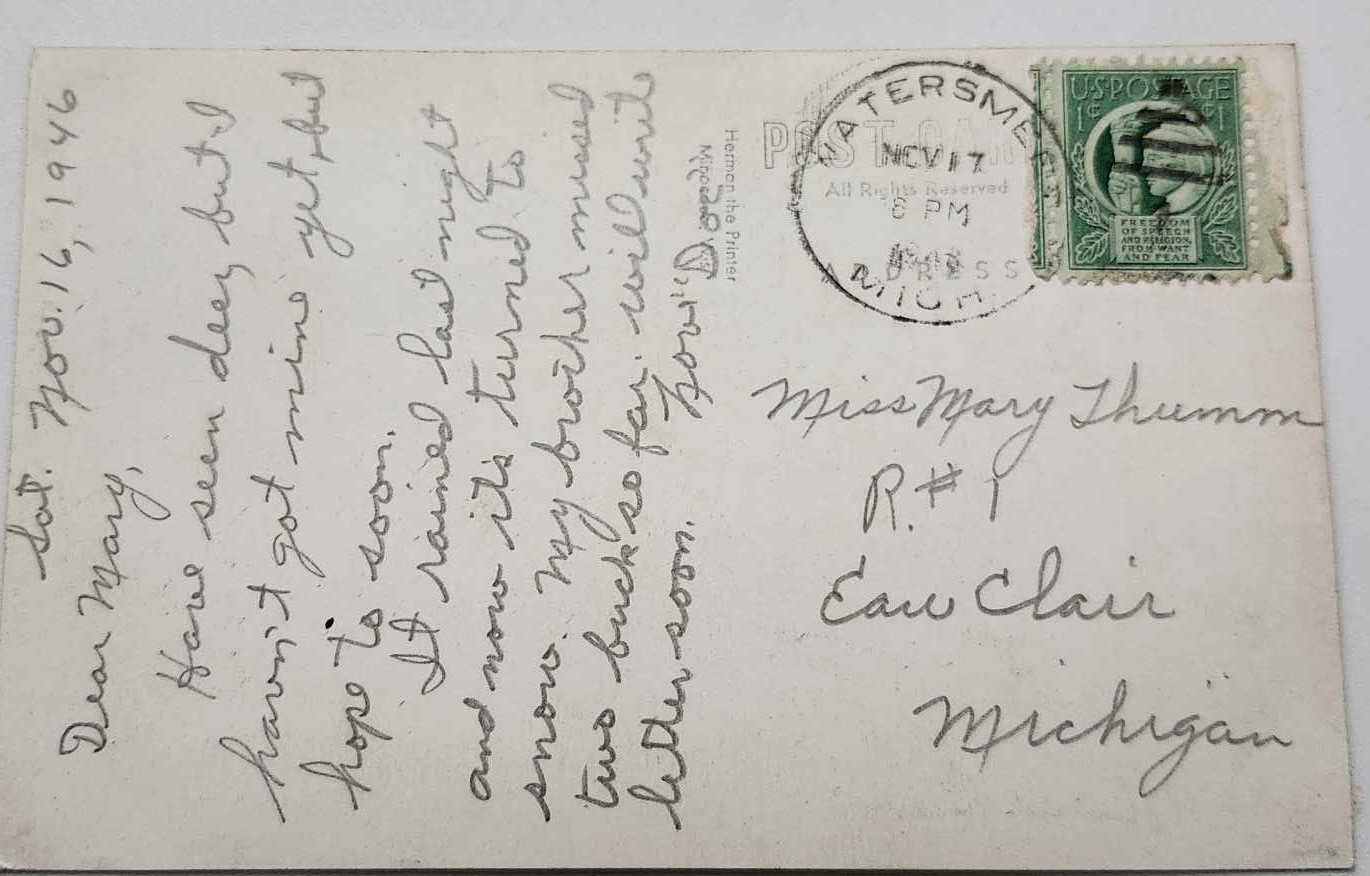 Sat. Nov. 16, 1946
Dear Mary,
Have seen deer but I
haven't got mine yet, but
hope to soon.
It rained last night
and now it's turned to
snow. My brother missed
two bucks so far. will write
letter soon.
Herman the Printer
POST CAR
All Rights Reserved
ADDRESS
WATERSMEET
NOV 17
6 PM
MICH.
U.S. POSTAGE
1¢ ¢1
FREEDOM
OF SPEECH
AND RELIGION,
FROM WANT
AND FEAR
Miss Mary Thumm
R. # 1
Eau Clair
Michigan